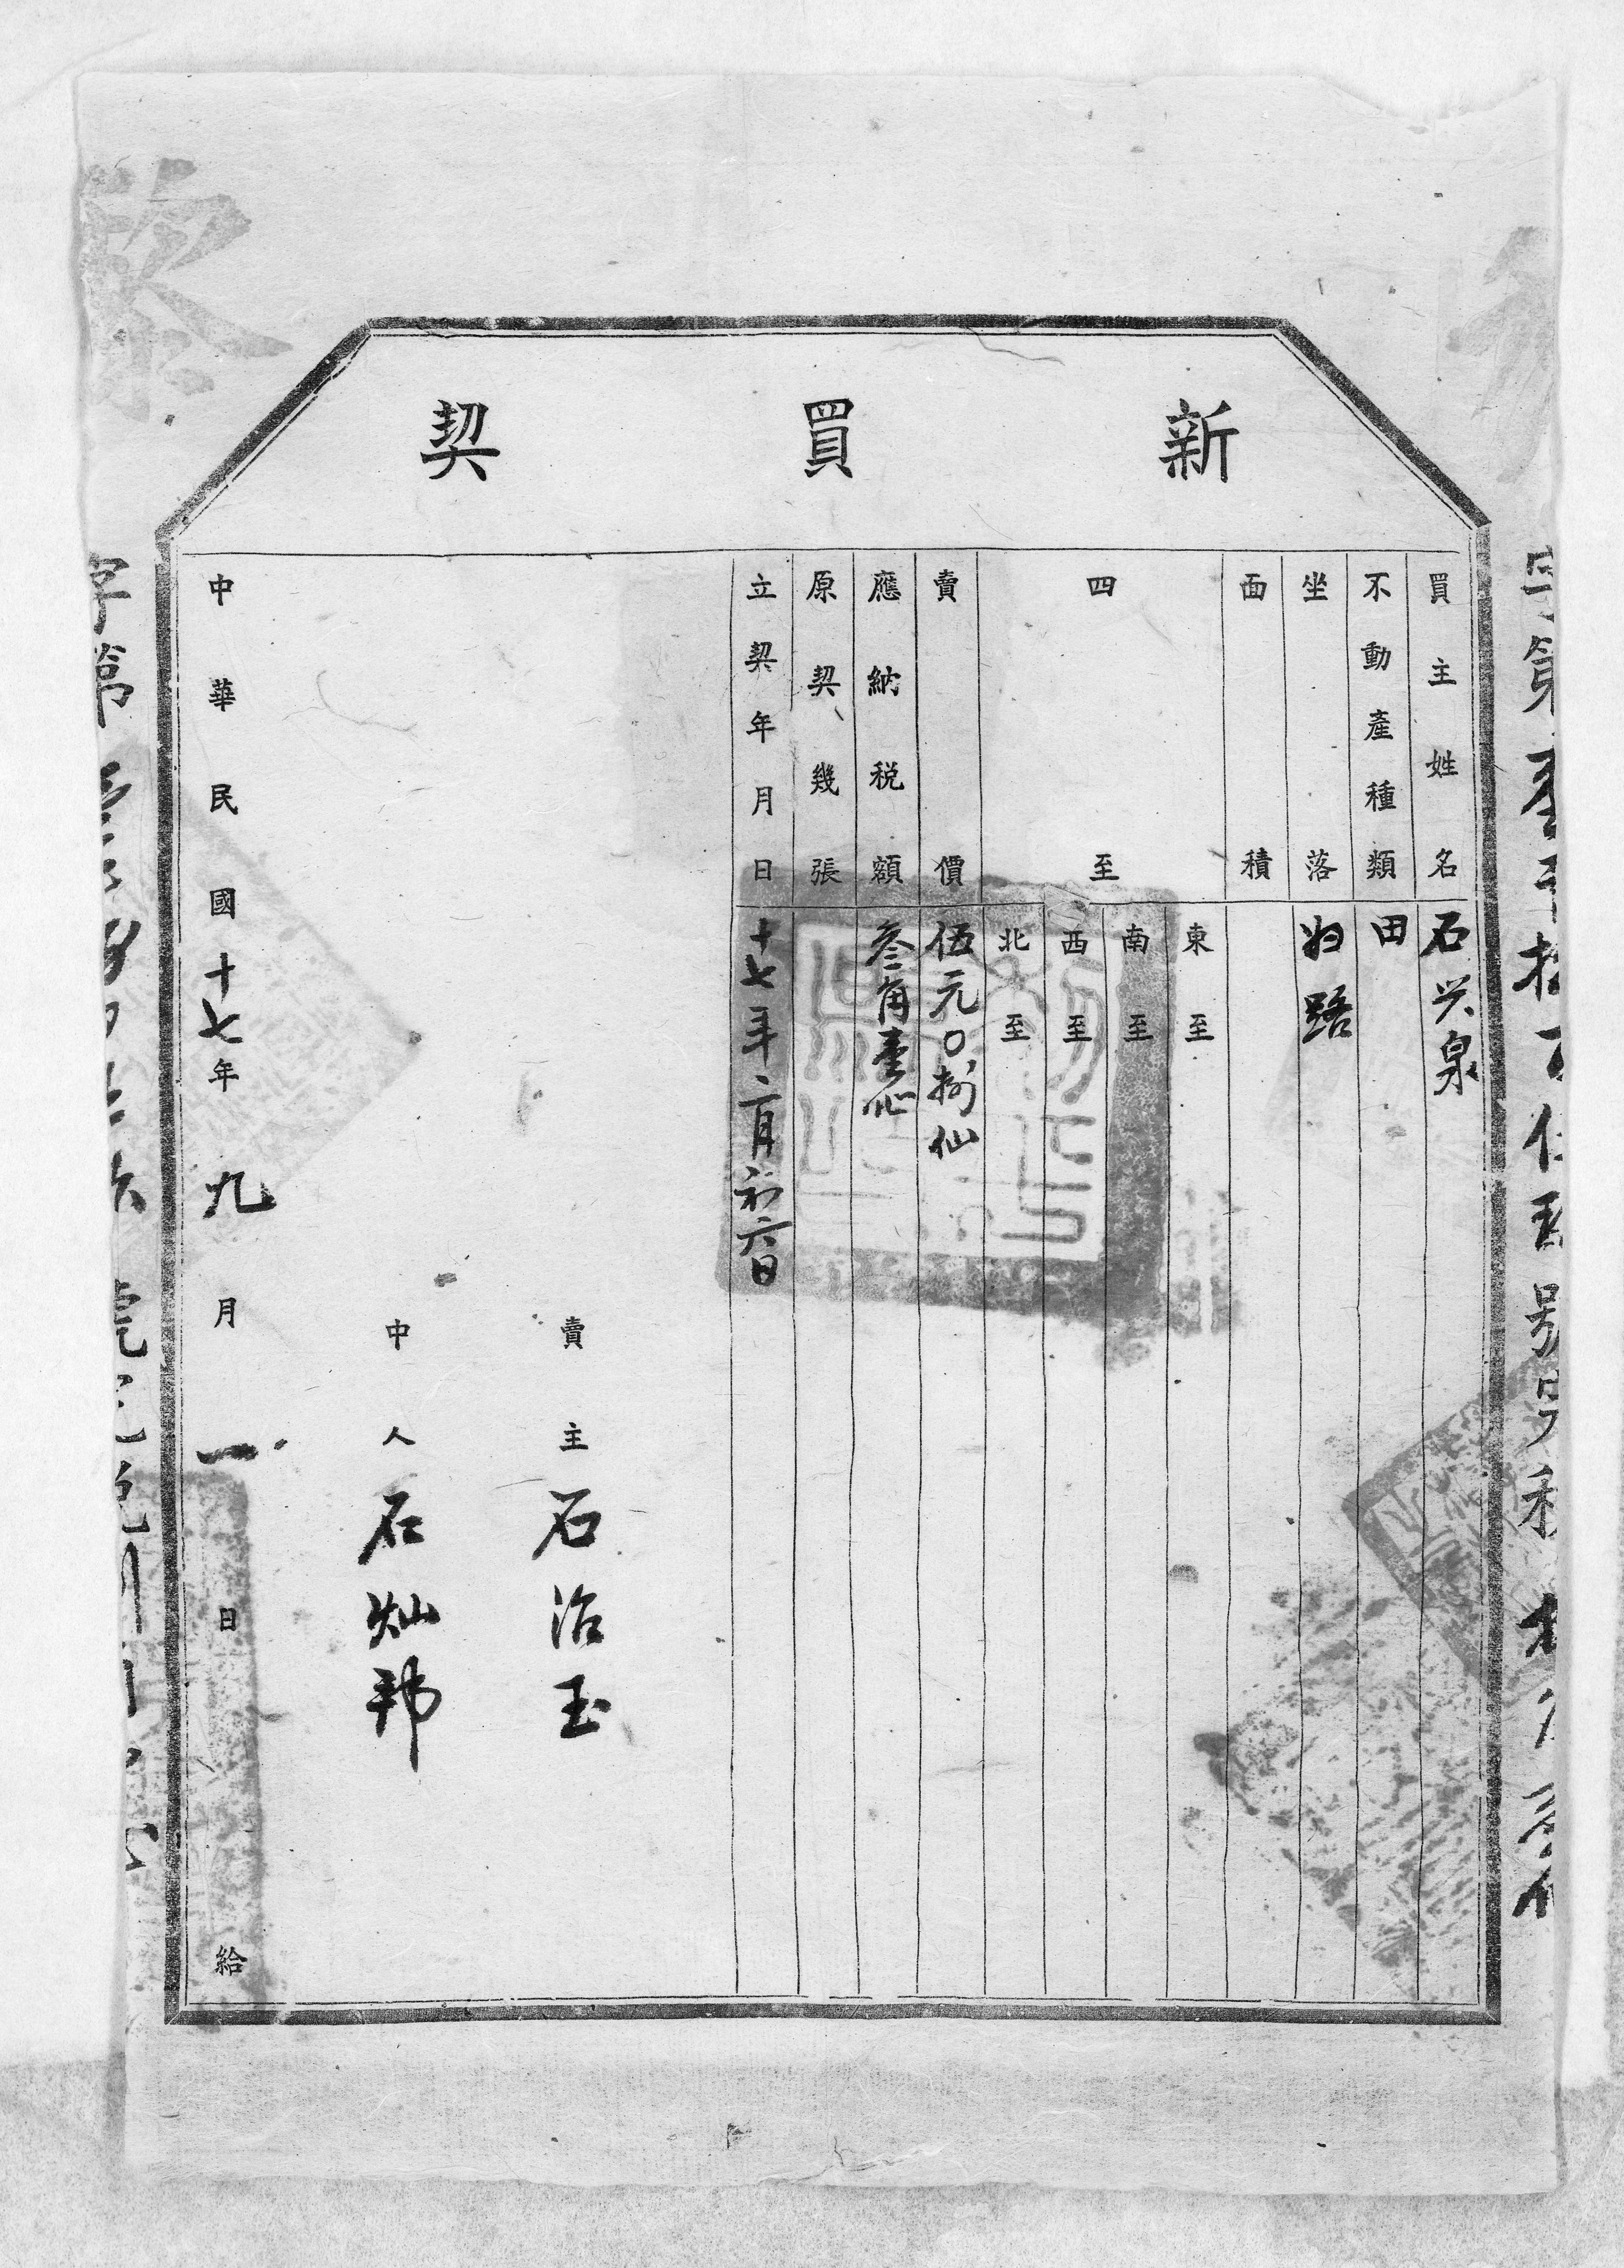 新買契
買主姓名 石兴泉
不動產種類 田
坐落 路
面積
四至
東至
南至
西至
北至
賣價 伍元〇捌仙
應納稅額 叁角壹仙
原契幾張
立契年月日 十七年二月初六日
賣主 石治玉
中人 石灿邦
中華民國十七年九月一日給
字第
黎
字第